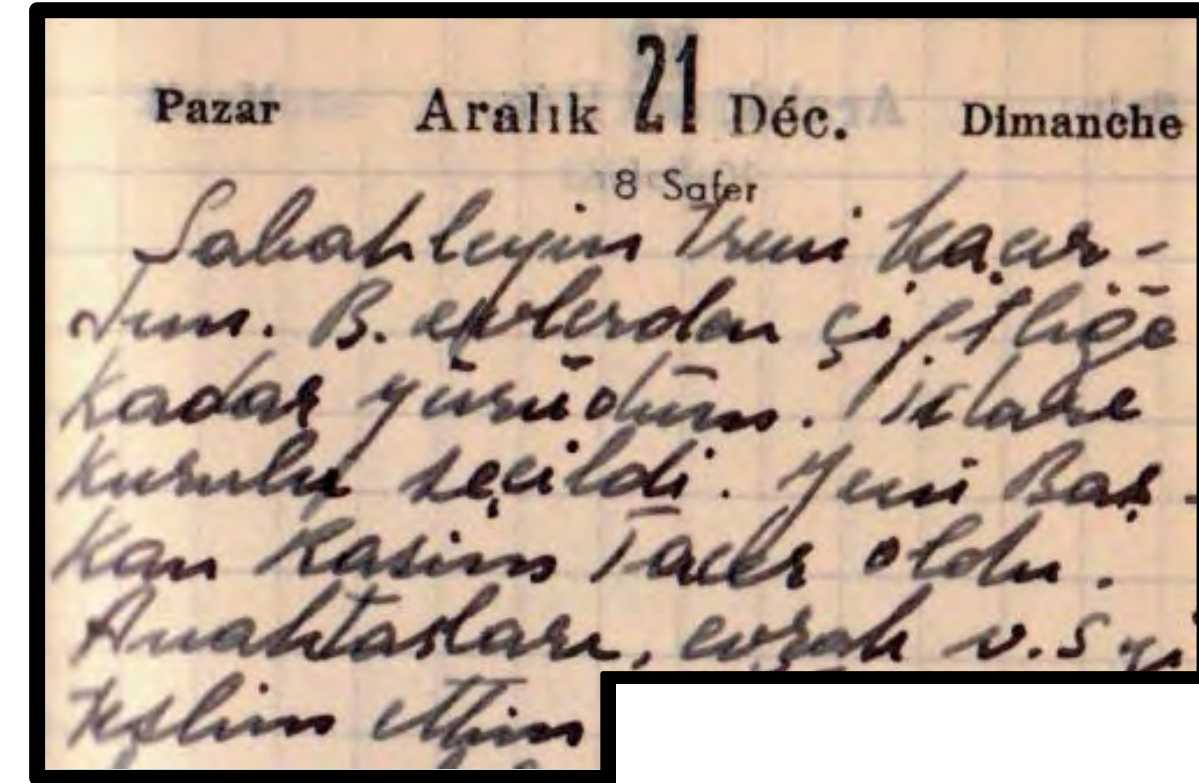 Pazar Aralık 21 Déc. Dimanche
8 Safer
Sabahleyin treni kaçır-
dım. B. evlerden çiftliğe
kadar yürüdüm. İdare
kurulu seçildi. Yeni Baş-
kan Kasım Tacer oldu.
Anahtarları, evrak v.s yi
teslim ettim